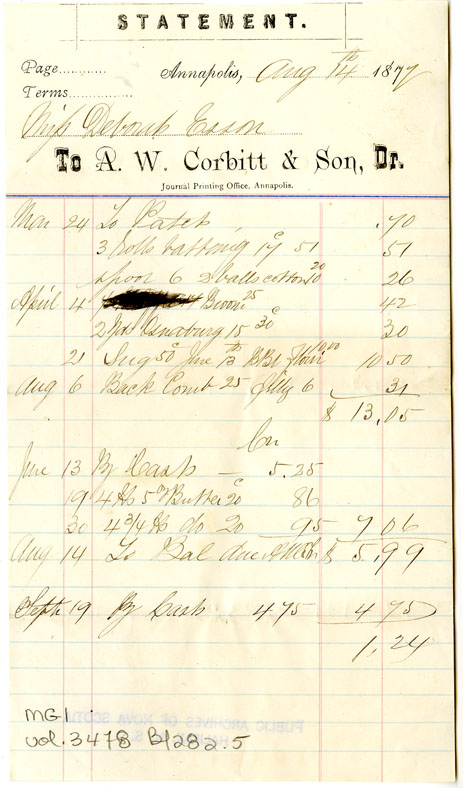 STATEMENT.
Page............ Annapolis, Aug 14th 1877
Terms................
Miss Deborah Esson
To A. W. Corbitt & Son, Dr.
Journal Printing Office, Annapolis.
Mar 24 To Patch .70
3 Rolls batting 17c 51 51
Spool 6 2 balls cotton 20 26
April 4 Broom 25 42
2 yds Osnaburg 15c 30 30
21 Sug 50c June 13th Bbl Flour 10.00 10 50
Aug 6 Back Comb 25 6 31
$ 13,05
Cr
June 13 By Cash — 5.25
19 4 lbs 5 oz Butter 20c 86
30 4 3/4 lbs do 20 95 7 06
Aug 14 To Bal due $ 5.99
Sept 19 By Cash 4.75 4 75
1,24
MG1
vol.3478 B1282.5
PUBLIC ARCHIVES OF NOVA SCOTIA